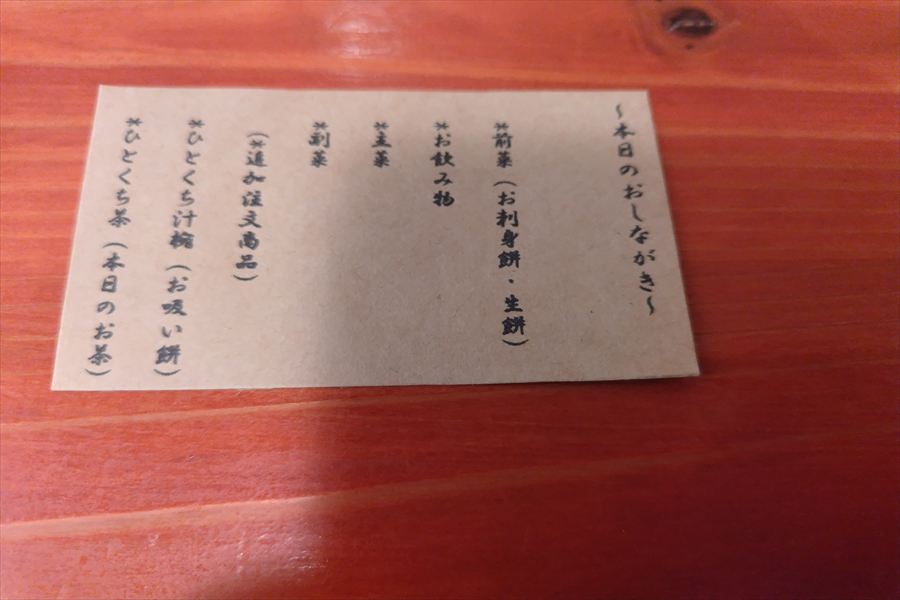 ～本日のおしながき～
*前菓(お刺身餅・生餅)
*お飲み物
*主菓
*副菓
(*追加注文商品)
*ひとくち汁椀(お吸い餅)
*ひとくち茶(本日のお茶)